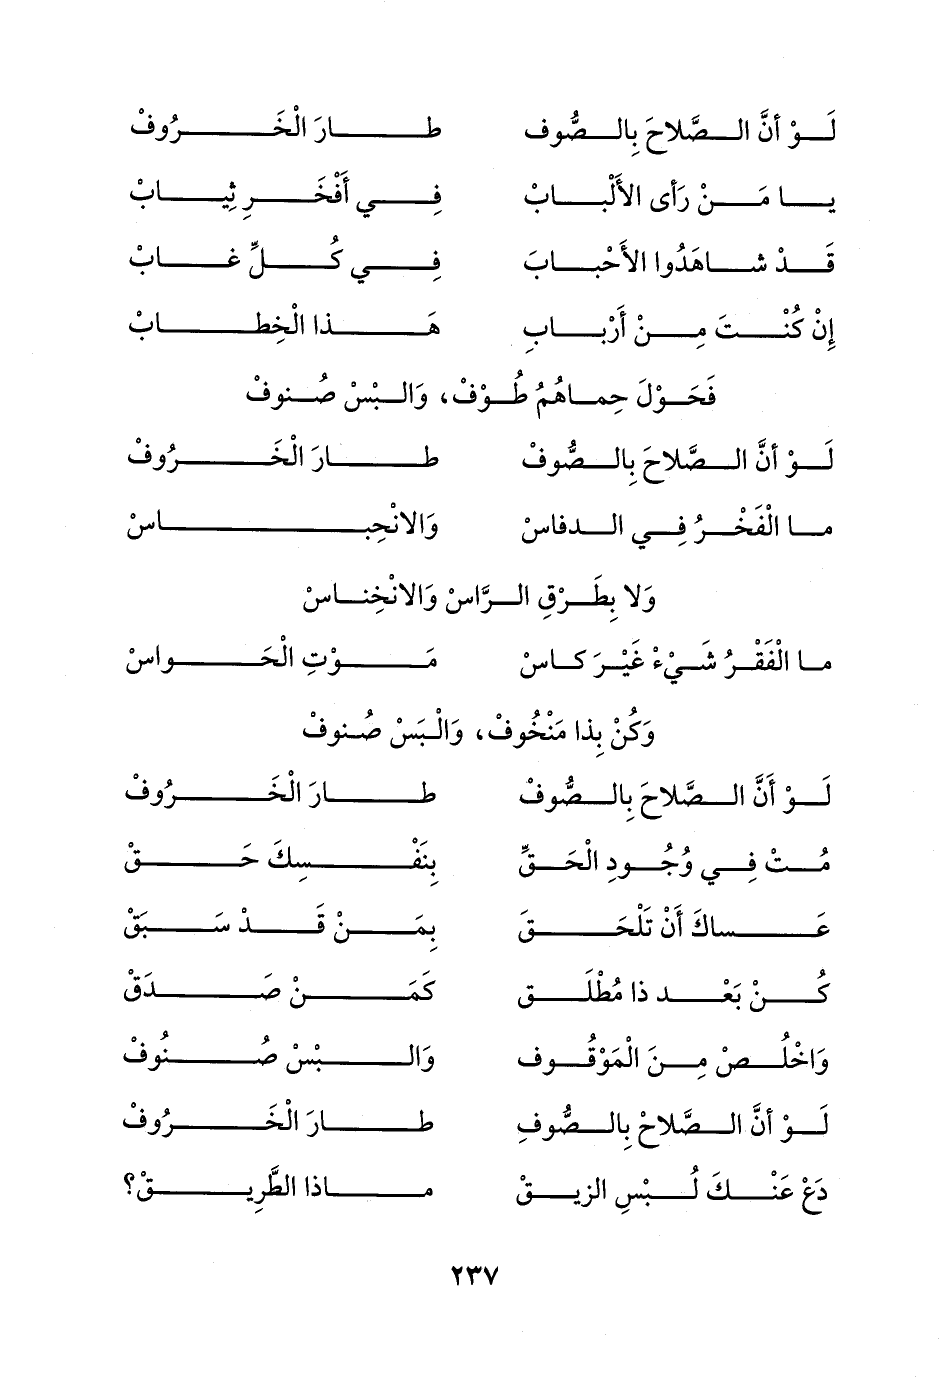 لَوْ أنَّ الصَّلاحَ بِالصُّوف طارَ الْخَرُوفْ
يا مَنْ رَأى الأَلْبابْ فِي أَفْخَرِ ثِيابْ
قَدْ شاهَدُوا الأَحْبابَ فِي كُلِّ غابْ
إنْ كُنْتَ مِنْ أَرْبابِ هَذا الْخِطابْ
فَحَوْلَ حِماهُمُ طُوْفْ، وَالبْسْ صُنوفْ
لَوْ أنَّ الصَّلاحَ بِالصُّوفْ طارَ الْخَرُوفْ
ما الْفَخْرُ فِي الدفاسْ وَالانْحِباسْ
وَلا بِطَرْقِ الرَّاسْ وَالانْخِناسْ
ما الْفَقْرُ شَيْءْ غَيْرَ كاسْ مَوْتِ الْحَواسْ
وَكُنْ بِذا مَنْخُوفْ، وَالْبَسْ صُنوفْ
لَوْ أَنَّ الصَّلاحَ بِالصُّوفْ طارَ الْخَرُوفْ
مُتْ فِي وُجُودِ الْحَقِّ بِنَفْسِكَ حَقْ
عَساكَ أَنْ تَلْحَقَ بِمَنْ قَدْ سَبَقْ
كُنْ بَعْد ذا مُطْلَق كَمَنْ صَدَقْ
وَاخْلُصْ مِنَ الْمَوْقُوف وَالبْسْ صُنُوفْ
لَوْ أنَّ الصَّلاحْ بِالصُّوفِ طارَ الْخَرُوفْ
دَعْ عَنْكَ لُبْسِ الزيقْ ماذا الطَّرِيقْ؟
٢٣٧